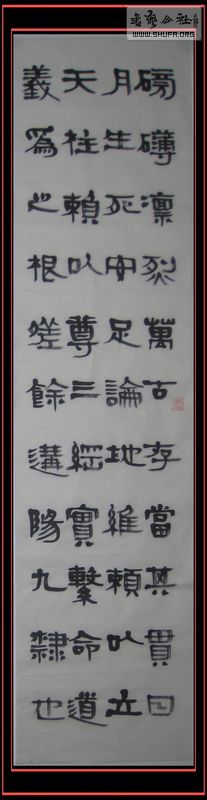 書藝公社
WWW.SHUFA.ORG
磅礴凛烈萬古存當其貫日
月生死安足論地維賴以立
天柱賴以尊三綱實繫命道
義爲之根嗟餘遘陽九隸也